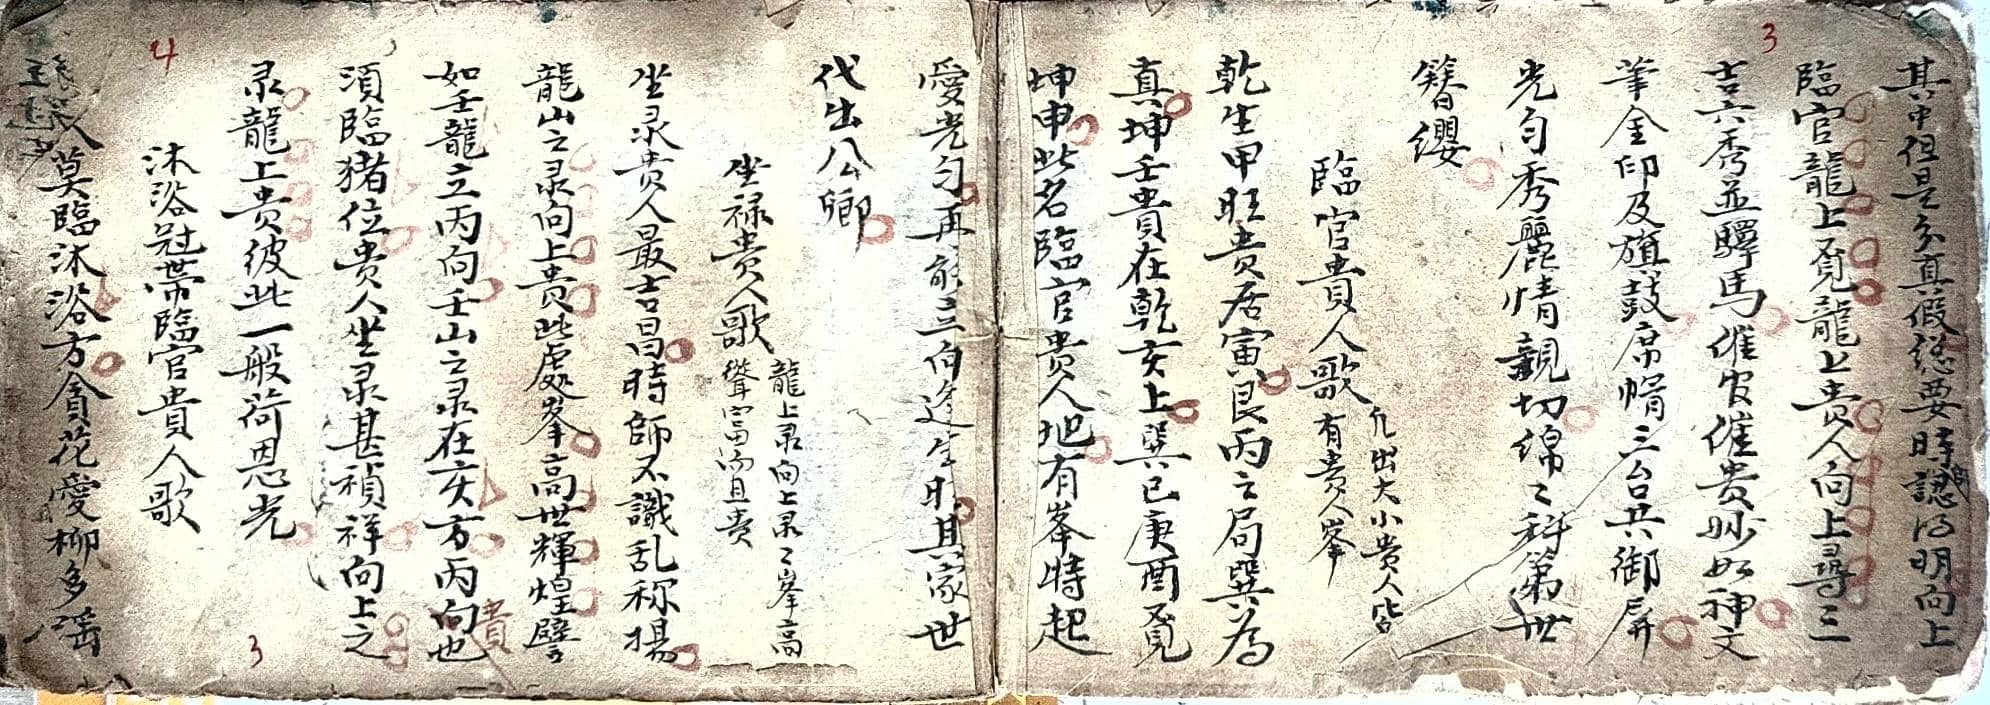 3
其中但是分真假總要時師認得明向上
臨官龍上覓龍上贵人向上尋三
吉六秀並驛馬催官催贵妙如神文
筆金印及旗鼓席帽三台共御屏
光勻秀麗情親切綿々科第世
簪纓
臨官貴人歌
凡出大小貴人皆
有貴人峯
乾生甲旺贵居寅艮丙之局巽為
真坤壬貴在乾亥上巽巳庚酉覓
坤申此名臨官贵人地有峯特起
愛光勻再能三向逢生旺其家世
代出公卿
坐禄贵人歌
龍上录向上录々峯高
聳富而且贵
坐录贵人最吉昌時師不識乱称揚
龍山之录向上贵此處峯高世輝煌譬
如壬龍立丙向壬山之录在亥方丙向也
貴
須臨豬位贵人坐录甚禎祥向上之
录龍上贵彼此一般荷恩光
3
沐浴冠带臨官貴人歌
4
莫臨沐浴方貪花愛柳多